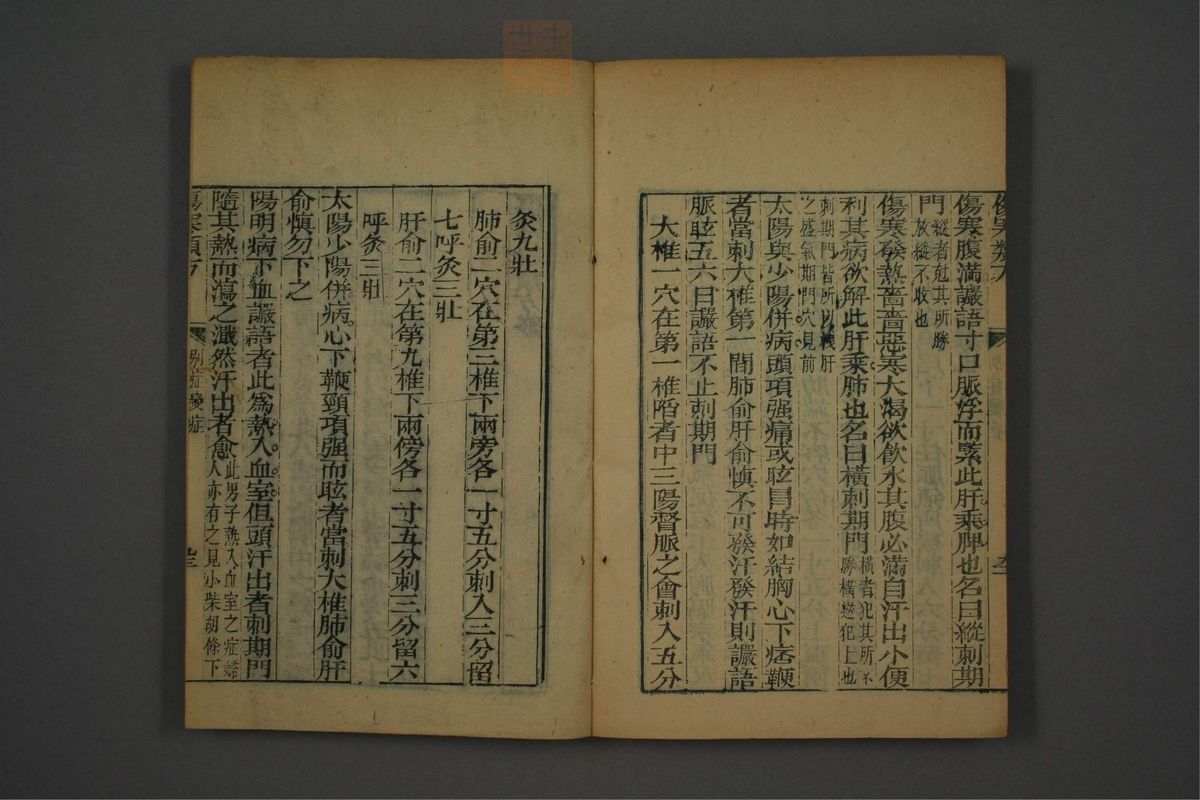 傷寒類方
傷寒腹滿讝語寸口脈浮而緊此肝乘脾也名曰縱刺期
門縱者尅其所勝放縱不收也
傷寒發熱嗇嗇惡寒大渴欲飲水其腹必滿自汗出小便
利其病欲解此肝乘肺也名曰橫刺期門橫者犯其所不勝橫逆犯上也
刺期門皆所以瀉肝之盛氣期門穴見前
太陽與少陽併病頭項强痛或眩冒時如結胸心下痞鞕
者當刺大椎第一間肺俞肝俞慎不可發汗發汗則讝語
脈眩五六日讝語不止刺期門
大椎一穴在第一椎陷者中三陽督脈之會刺入五分
灸九壯
肺俞二穴在第三椎下兩旁各一寸五分刺入三分留
七呼灸三壯
肝俞二穴在第九椎下兩傍各一寸五分刺三分留六
呼灸三壯
太陽少陽併病心下鞕頸項强而眩者當刺大椎肺俞肝
俞慎勿下之
陽明病下血讝語者此為熱入血室但頭汗出者刺期門
隨其熱而瀉之濈然汗出者愈此男子熱入血室之症婦人亦有之見小柴胡條下
傷寒類方
別症變症